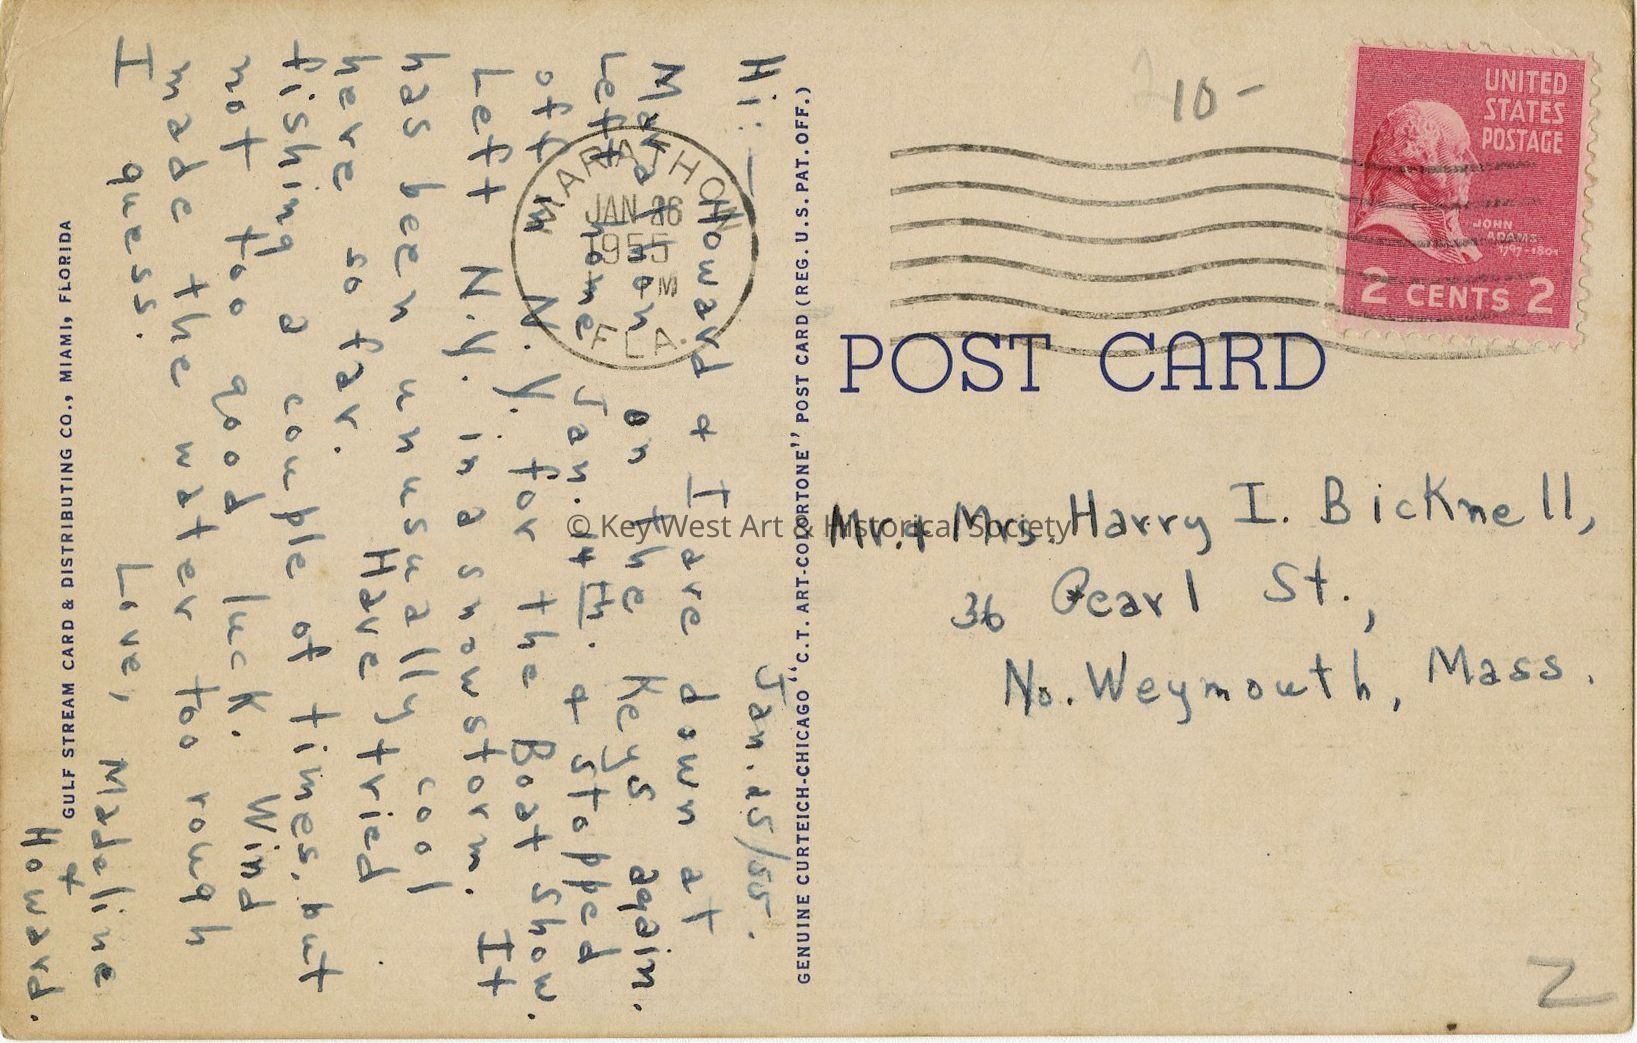 Jan. 25/55.
Hi: —
Howard & I are down at
Marathon on the Keys again.
Left home Jan. 14th. & stopped
off in N.Y. for the Boat Show.
Left N.Y. in a snowstorm. It
has been unusually cool
here so far. Have tried
fishing a couple of times, but
not too good luck. Wind
made the water too rough
I guess.
Love,
Madeline
&
Howard.
MARATHON
JAN 26
1955
PM
FLA.
GULF STREAM CARD & DISTRIBUTING CO., MIAMI, FLORIDA
GENUINE CURTEICH-CHICAGO "C.T. ART-COLORTONE" POST CARD (REG. U.S. PAT. OFF.)
10-
UNITED
STATES
POSTAGE
JOHN
ADAMS
1797-1801
2 CENTS 2
POST CARD
Mr. & Mrs. Harry I. Bicknell,
36 Pearl St.,
No. Weymouth, Mass.
Z
© Key West Art & Historical Society